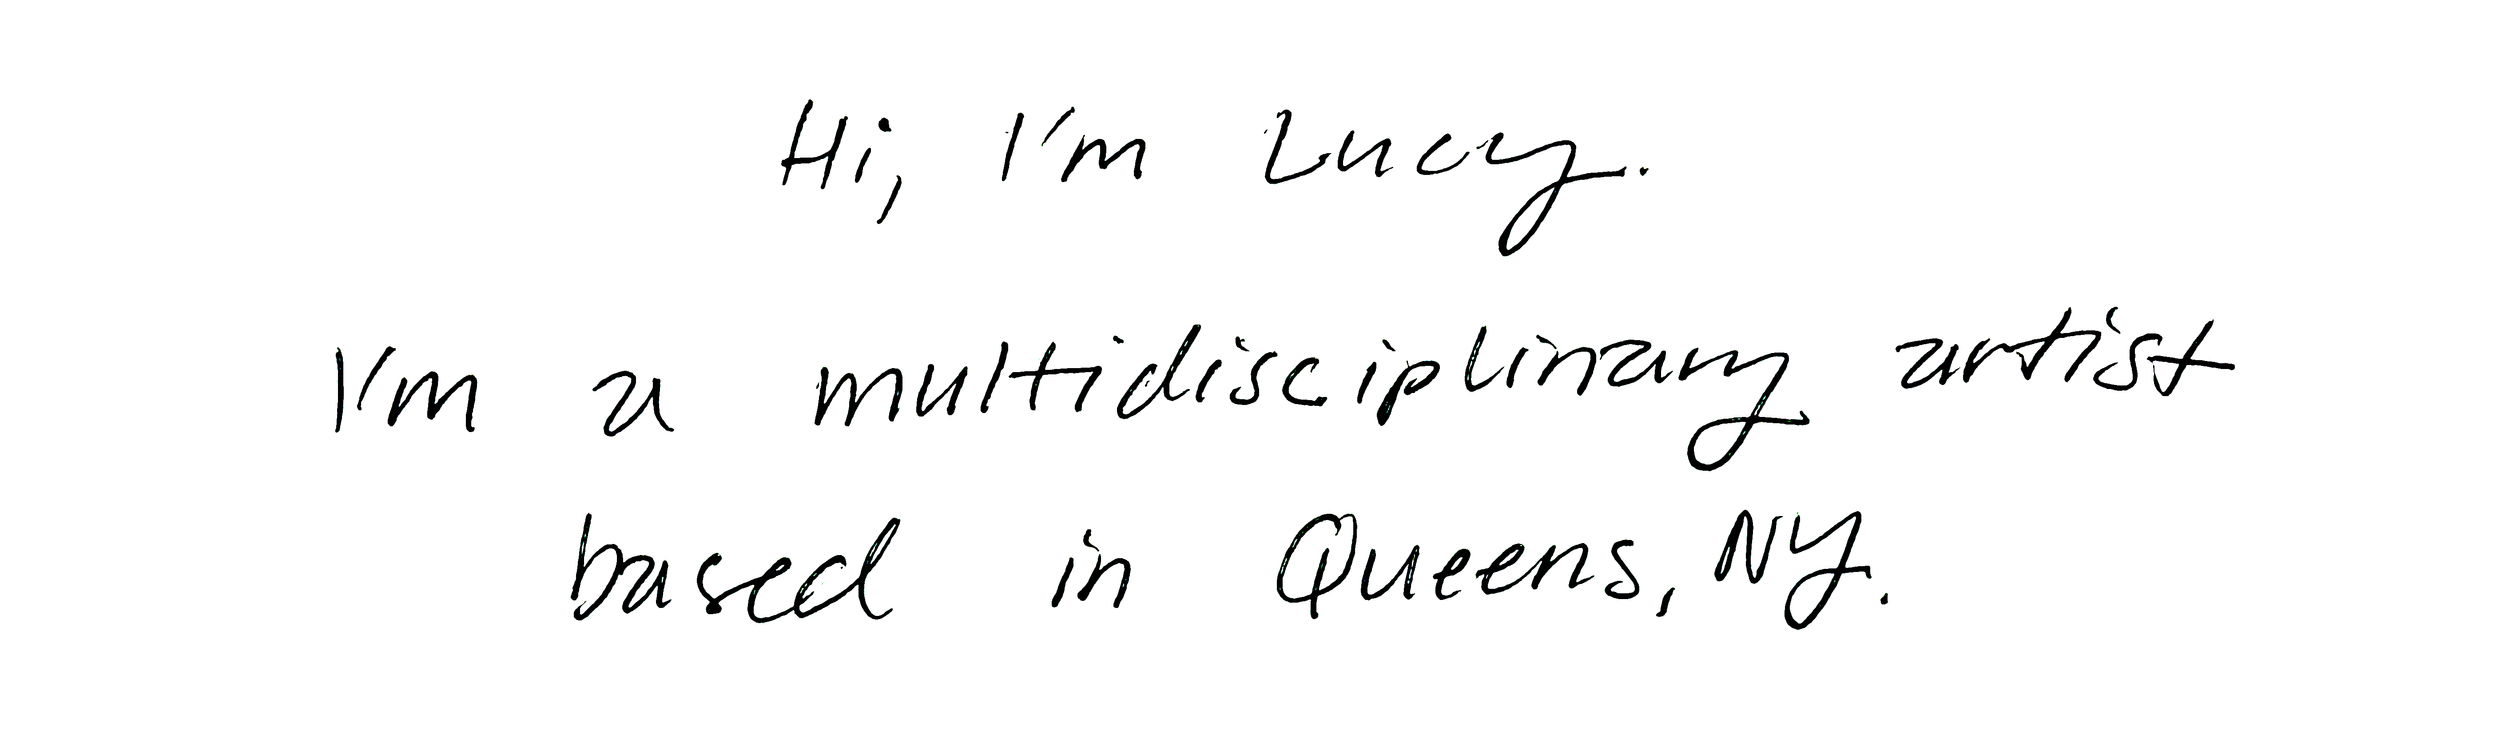 Hi, I'm Lucy.
I'm a multidisciplinary artist
based in Queens, NY.